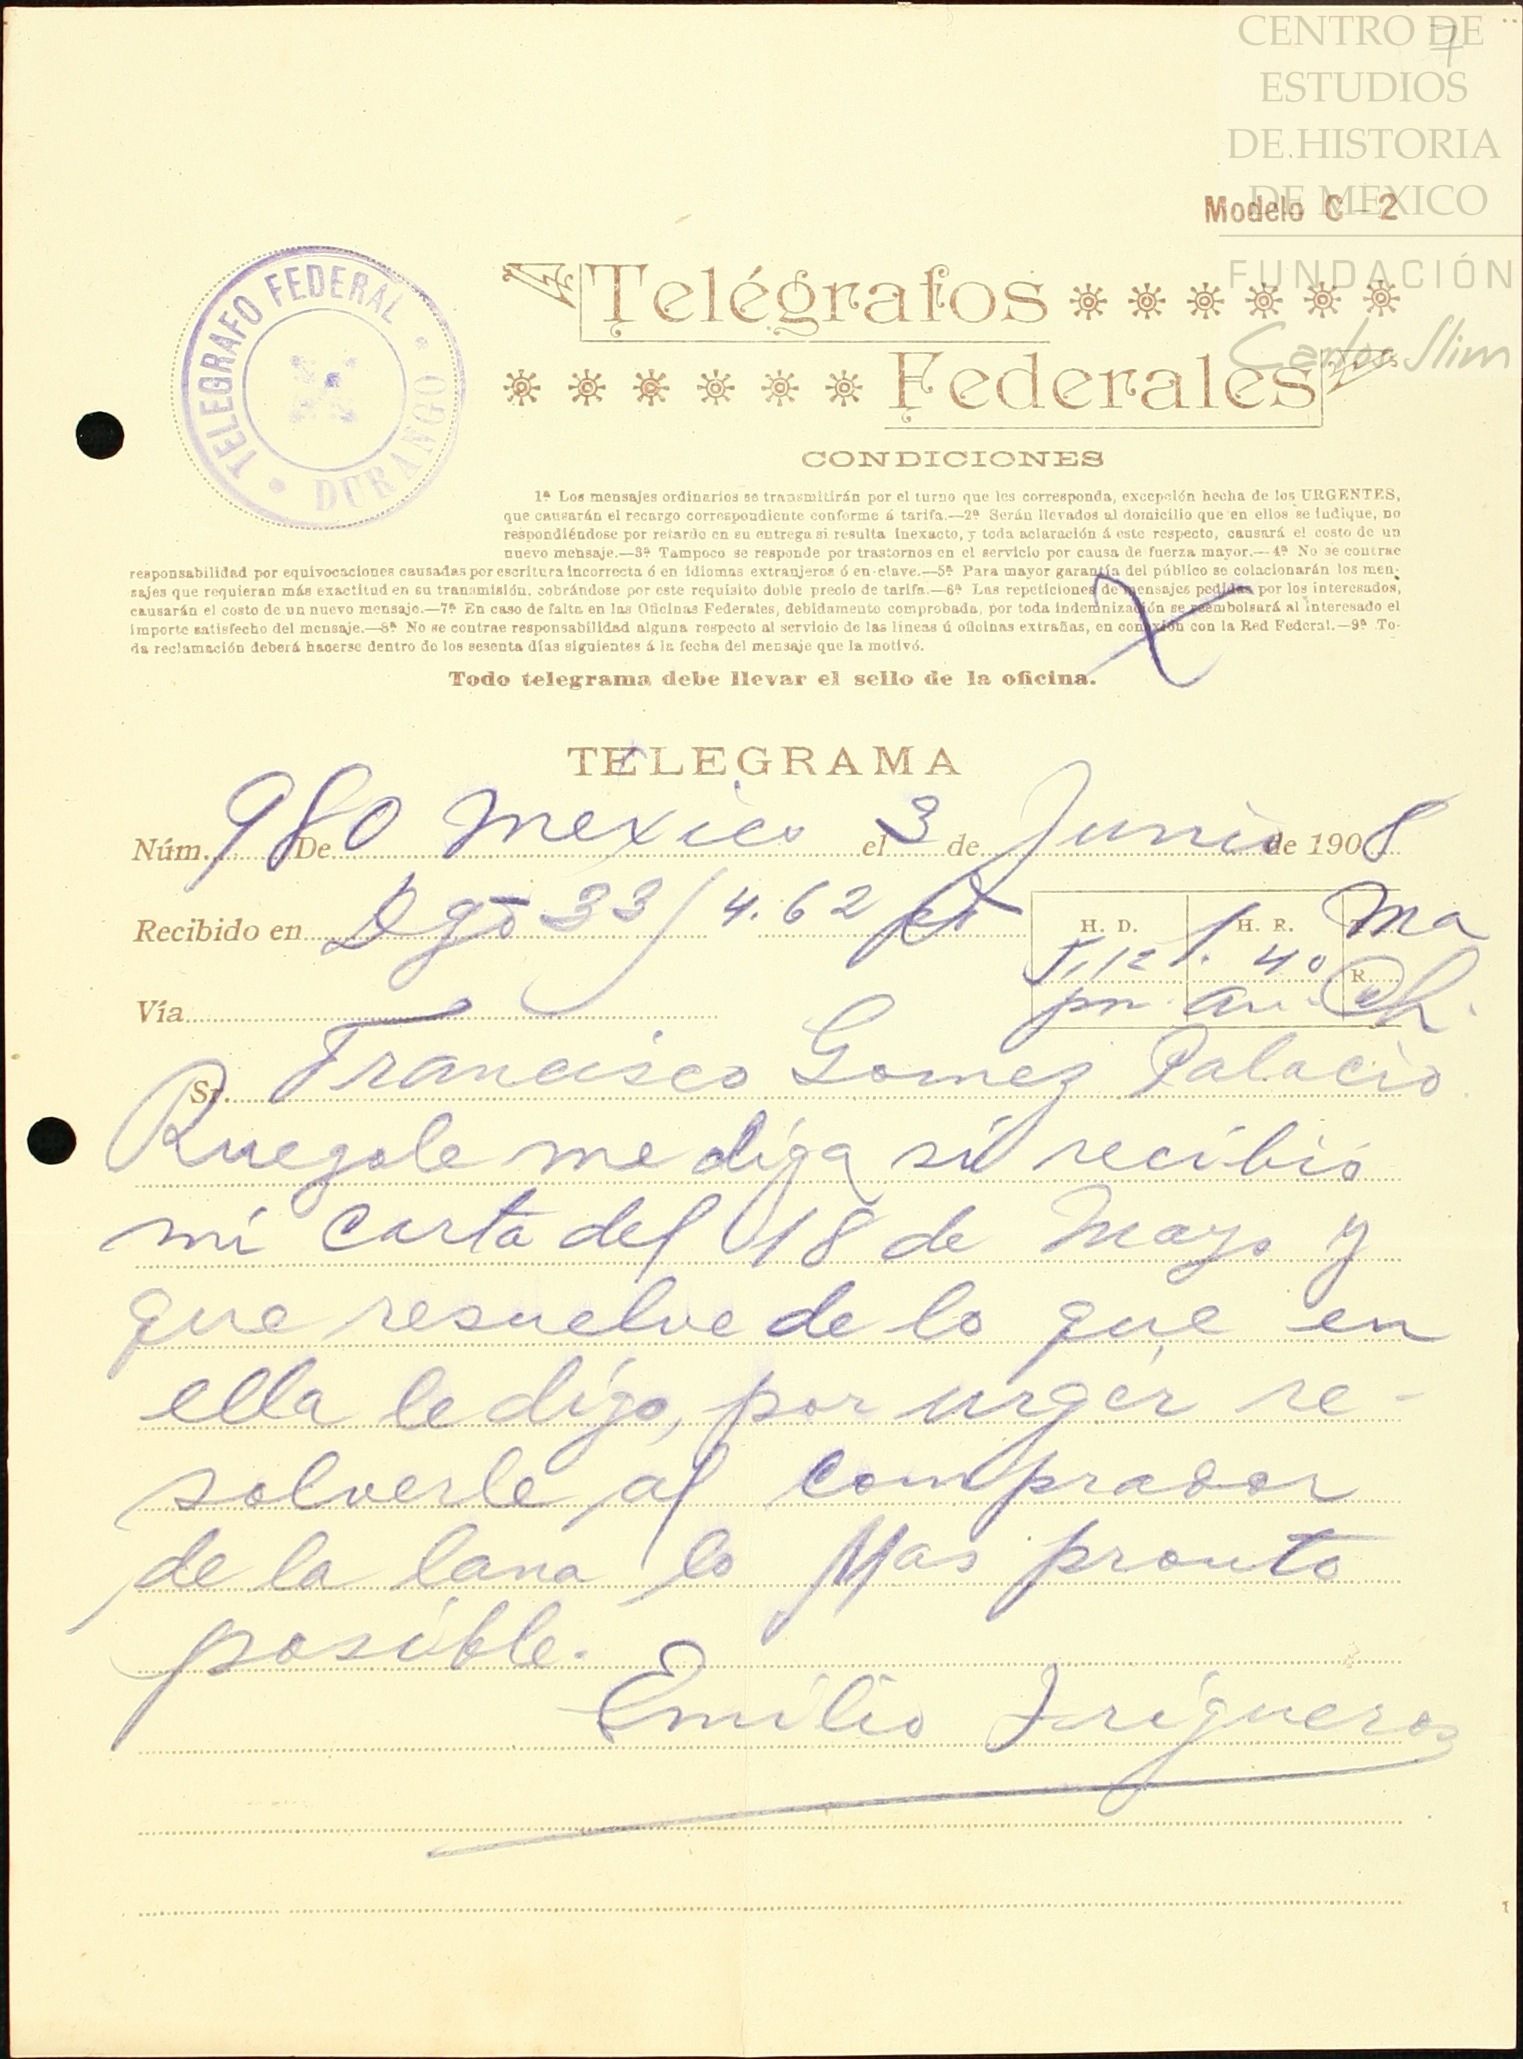 7
CENTRO DE
ESTUDIOS
DE HISTORIA
DE MEXICO
FUNDACIÓN
Carlos Slim
Modelo C-2
TELEGRAFO FEDERAL
DURANGO
Telégrafos
Federales
CONDICIONES
1ª Los mensajes ordinarios se transmitirán por el turno que les corresponda, excepción hecha de los URGENTES,
que causarán el recargo correspondiente conforme á tarifa.—2ª Serán llevados al domicilio que en ellos se indique, no
respondiéndose por retardo en su entrega si resulta inexacto, y toda aclaración á este respecto, causará el costo de un
nuevo mensaje.—3ª Tampoco se responde por trastornos en el servicio por causa de fuerza mayor.—4ª No se contrae
responsabilidad por equivocaciones causadas por escritura incorrecta ó en idiomas extranjeros ó en clave.—5ª Para mayor garantía del público se colacionarán los men-
sajes que requieran más exactitud en su transmisión, cobrándose por este requisito doble precio de tarifa.—6ª Las repeticiones de mensajes pedidas por los interesados,
causarán el costo de un nuevo mensaje.—7ª En caso de falta en las Oficinas Federales, debidamente comprobada, por toda indemnización se reembolsará al interesado el
importe satisfecho del mensaje.—8ª No se contrae responsabilidad alguna respecto al servicio de las lineas ú oficinas extrañas, en conexión con la Red Federal.—9ª To-
da reclamación deberá hacerse dentro de los sesenta días siguientes á la fecha del mensaje que la motivó.
Todo telegrama debe llevar el sello de la oficina.
TELEGRAMA
Núm. 980 De Mexico el 3 de Junio de 1908
Recibido en Dgo 33/4.62
H. D. H. R. T. Ma
5,12 1. 40 R. Ch.
pm am
Vía
Sr. Francisco Gomez Palacio
Ruegole me diga si recibió
mi carta del 18 de Mayo y
que resuelve de lo que en
ella le digo, por urgir re-
solverle al comprador
de la lana lo Mas pronto
posible.
Emilio Trigueros